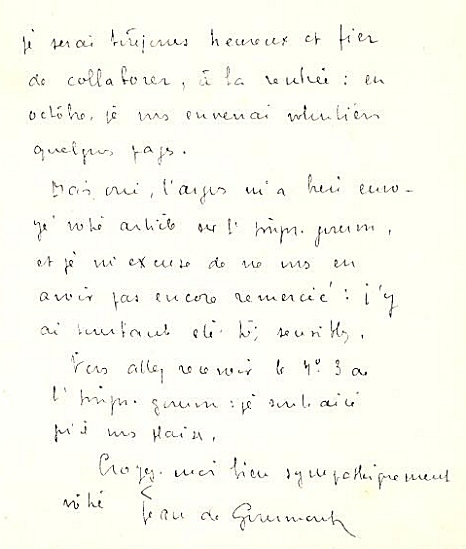 je serai toujours heureux et fier
de collaborer, à la rentrée : en
octobre, je vous enverrai volontiers
quelques pages.
Mais oui, l'argus m'a bien envo-
yé votre article sur l'Impr. gourm.,
et je m'excuse de ne vous en
avoir pas encore remercié : j'y
ai pourtant été très sensible.
Vous allez recevoir le n° 3 de
l'Impr. gourm : je souhaite
qu'il vous plaise.
Croyez-moi bien sympathiquement
votre Jean de Gourmont